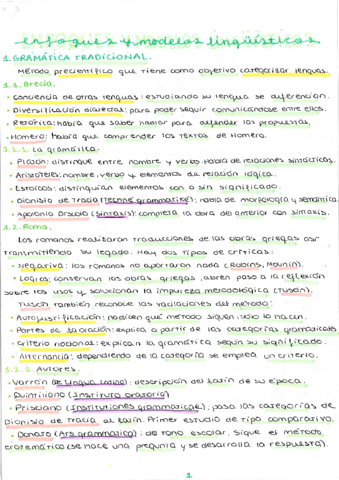 enfoques y modelos lingüísticos
1. GRAMÁTICA TRADICIONAL.
Método precientífico que tiene como objetivo categorizar lenguas.
1.1. Grecia.
• Conciencia de otras lenguas: estudiando su lengua se diferencian.
• Diversificación dialectal: para poder seguir comunicándose entre ellos.
• Retórica: había que saber hablar para defender las propuestas.
• Homero: había que comprender los textos de Homero.
1.1.1. La gramática.
• Platón: distingue entre nombre y verbo. Habla de relaciones sintácticas.
• Aristóteles: nombre, verbo y elementos de relación lógica.
• Estoicos: distinguían elementos con o sin significado.
• Dionisio de Tracia (Tecné grammatiké): habla de morfología y semántica.
• Apolonio Díscolo (Sintaxis): completa la obra del anterior con sintaxis.
1.2. Roma.
Los romanos realizaron traducciones de las obras griegas así
transmitiendo su legado. Hay dos tipos de críticas:
• Negativa: los romanos no aportaron nada (Robins, Mounin).
• Logros: conservan las obras griegas, abren paso a la reflexión
sobre los usos y solucionan la impureza metodológica (Tusón).
Tusón también reconoce las variaciones del método:
• Autojustificación: no dicen qué método siguen, solo lo hacen.
• Partes de la oración: explica a partir de las categorías gramaticales.
• Criterio nocional: explican la gramática según su significado.
• Alternancia: dependiendo de la categoría se emplea un criterio.
1.2.1. Autores.
• Varrón (De Lingua Latina): descripción del latín de su época.
• Quintiliano (Instituto oratoria)
• Prisciano (Institutiones grammaticae): pasa las categorías de
Dionisio de Tracia al latín. Primer estudio de tipo comparativo.
• Donato (Ars grammatica): de tono escolar, sigue el método
erotemático (se hace una pregunta y se desarrolla la respuesta).
1